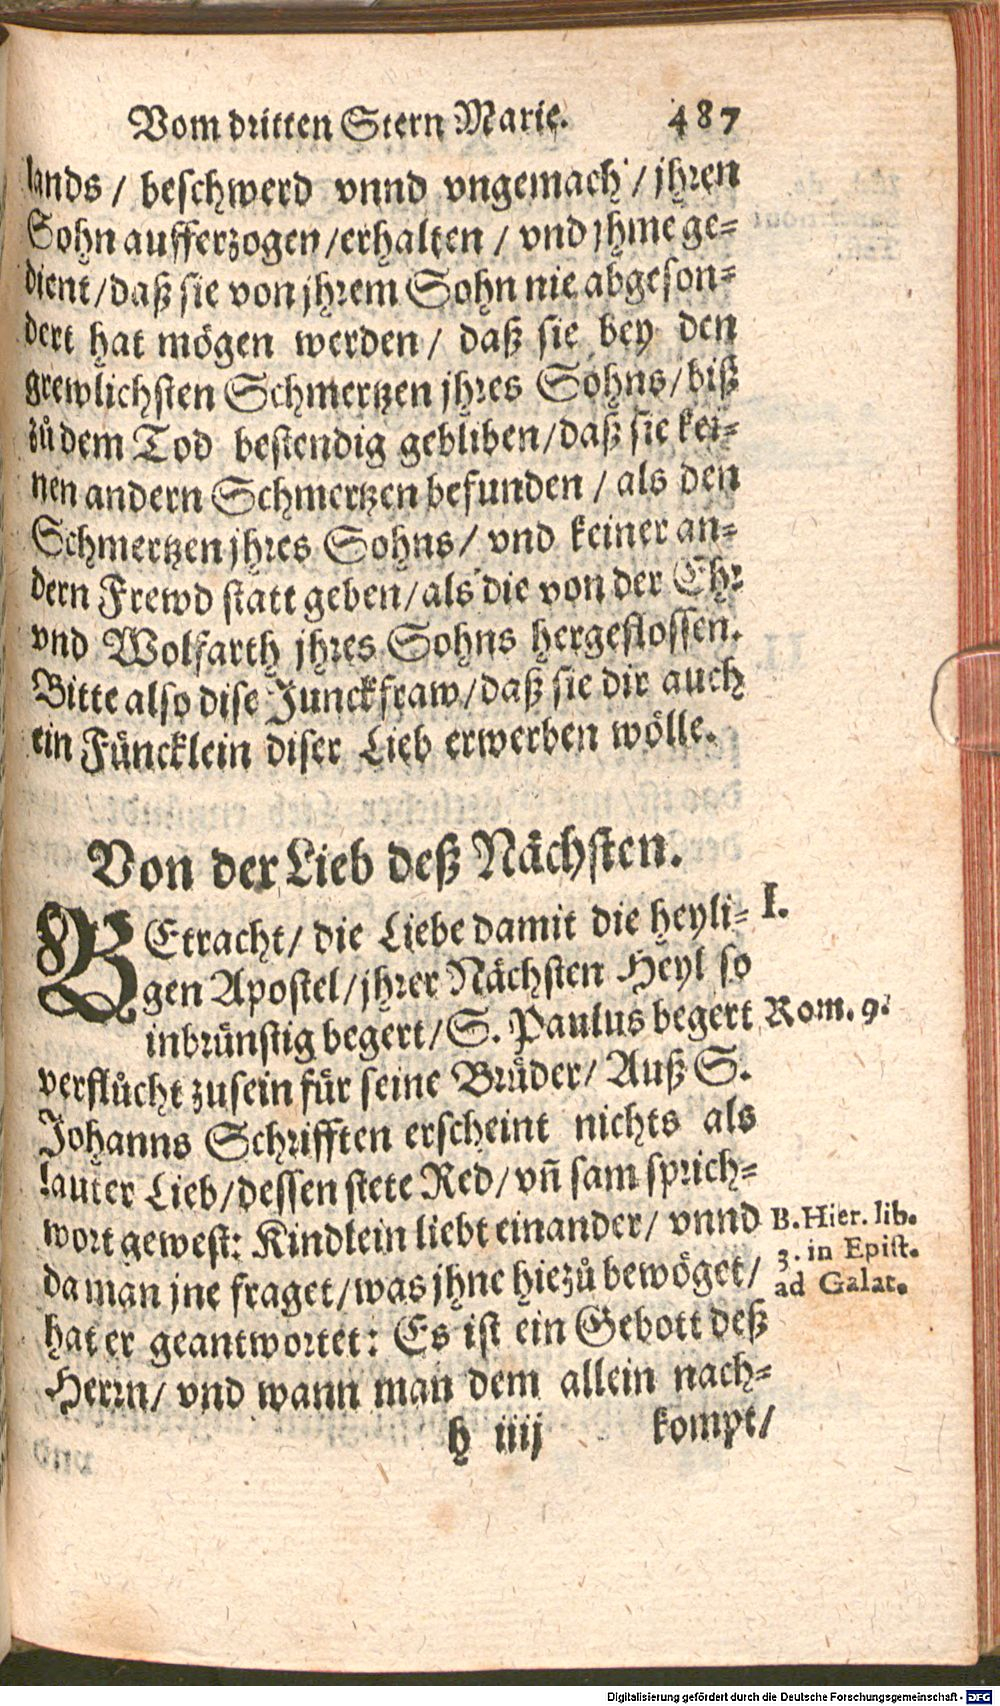 Vom dritten Stern Marie. 487
lands / beschwerd vnnd vngemach / jhren
Sohn aufferzogen / erhalten / vnd jhme ge-
dient / daß sie von jhrem Sohn nie abgeson-
dert hat mögen werden / daß sie bey den
grewlichsten Schmertzen jhres Sohns / biß
zů dem Tod bestendig gebliben / daß sie kei-
nen andern Schmertzen befunden / als den
Schmertzen jhres Sohns / vnd keiner an-
dern Frewd statt geben / als die von der Ehr
vnd Wolfarth jhres Sohns hergeflossen.
Bitte also dise Junckfraw / daß sie dir auch
ein Füncklein diser Lieb erwerben wölle.
Von der Lieb deß Nächsten.
BEtracht / die Liebe damit die heyli- I.
gen Apostel / jhrer Nächsten Heyl so
inbrünstig begert / S. Paulus begert Rom. 9.
verflůcht zusein für seine Brüder / Auß S.
Johanns Schrifften erscheint nichts als
lauter Lieb / dessen stete Red / vñ sam sprich-
wort gewest: Kindlein liebt einander / vnnd B. Hier. lib.
da man jne fraget / was jhne hiezů bewöget / 3. in Epist.
ad Galat.
hat er geantwortet: Es ist ein Gebott deß
Herrn / vnd wann man dem allein nach-
h iiij kompt /
Digitalisierung gefördert durch die Deutsche Forschungsgemeinschaft - DFG